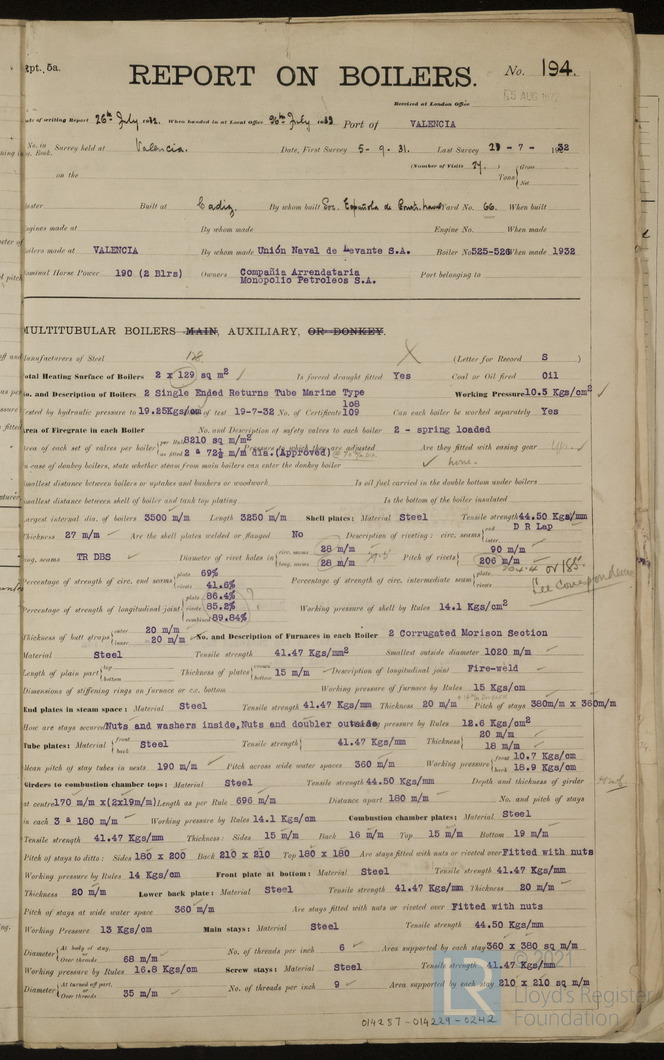 Rpt. 5a.
REPORT ON BOILERS.
No. 194.
Received at London Office
5 AUG
Date of writing Report 26th July 1932. When handed in at Local Office 26th July 1932 Port of VALENCIA
No. in Survey held at Valencia. Date, First Survey 5-9-31. Last Survey 21-7-1932
Book.
(Number of Visits 27.)
on the Tons Gross Net
Master Built at Cadiz. By whom built Soc. Española de Constr. Naval Yard No. 66. When built
Engines made at By whom made Engine No. When made
Boilers made at VALENCIA By whom made Unión Naval de Levante S.A. Boiler No 525-526 When made 1932
Nominal Horse Power 190 (2 Blrs) Owners Compañia Arrendataria Monopolio Petroleos S.A. Port belonging to
MULTITUBULAR BOILERS MAIN, AUXILIARY, OR DONKEY.
Manufacturers of Steel (Letter for Record S)
128
Total Heating Surface of Boilers 2 x 129 sq m2 Is forced draught fitted Yes Coal or Oil fired Oil
No. and Description of Boilers 2 Single Ended Returns Tube Marine Type Working Pressure 10.5 Kgs/cm2
Tested by hydraulic pressure to 19.25Kgs/cm of test 19-7-32 No. of Certificate 108 109 Can each boiler be worked separately Yes
Area of Firegrate in each Boiler No. and Description of safety valves to each boiler 2 - spring loaded
Area of each set of valves per boiler per Rule 8210 sq m/m2 as fitted 2 a 72½ m/m dia.(Approved) Pressure to which they are adjusted Are they fitted with easing gear
In case of donkey boilers, state whether steam from main boilers can enter the donkey boiler none.
Smallest distance between boilers or uptakes and bunkers or woodwork Is oil fuel carried in the double bottom under boilers
Smallest distance between shell of boiler and tank top plating Is the bottom of the boiler insulated
Largest internal dia. of boilers 3500 m/m Length 3250 m/m Shell plates: Material Steel Tensile strength 44.50 Kgs/mm
Thickness 27 m/m Are the shell plates welded or flanged No Description of riveting: circ. seams end D R Lap inter.
long. seams TR DBS Diameter of rivet holes in circ. seams 28 m/m long. seams 28 m/m Pitch of rivets 90 m/m 206 m/m
See Correspondence
Percentage of strength of circ. end seams plate 69% rivets 41.6% Percentage of strength of circ. intermediate seam plate rivets
Percentage of strength of longitudinal joint plate 86.4% rivets 85.2% combined 89.84% Working pressure of shell by Rules 14.1 Kgs/cm2
Thickness of butt straps outer 20 m/m inner 20 m/m No. and Description of Furnaces in each Boiler 2 Corrugated Morison Section
Material Steel Tensile strength 41.47 Kgs/mm2 Smallest outside diameter 1020 m/m
Length of plain part top bottom Thickness of plates crown bottom 15 m/m Description of longitudinal joint Fire-weld
Dimensions of stiffening rings on furnace or c.c. bottom Working pressure of furnace by Rules 15 Kgs/cm
End plates in steam space: Material Steel Tensile strength 41.47 Kgs/mm Thickness 20 m/m Pitch of stays 380m/m x 360m/m
How are stays secured Nuts and washers inside,Nuts and doubler outside Working pressure by Rules 12.6 Kgs/cm2
Tube plates: Material front back Steel Tensile strength 41.47 Kgs/mm Thickness 20 m/m 18 m/m
Mean pitch of stay tubes in nests 190 m/m Pitch across wide water spaces 360 m/m Working pressure front 10.7 Kgs/cm back 18.9 Kgs/cm
Girders to combustion chamber tops: Material Steel Tensile strength 44.50 Kgs/mm Depth and thickness of girder
at centre 170 m/m x(2x19m/m) Length as per Rule 696 m/m Distance apart 180 m/m No. and pitch of stays
in each 3 a 180 m/m Working pressure by Rules 14.1 Kgs/cm Combustion chamber plates: Material Steel
Tensile strength 41.47 Kgs/mm Thickness: Sides 15 m/m Back 16 m/m Top 15 m/m Bottom 19 m/m
Pitch of stays to ditto: Sides 180 x 200 Back 210 x 210 Top 180 x 180 Are stays fitted with nuts or riveted over Fitted with nuts
Working pressure by Rules 14 Kgs/cm Front plate at bottom: Material Steel Tensile strength 41.47 Kgs/mm
Thickness 20 m/m Lower back plate: Material Steel Tensile strength 41.47 Kgs/mm Thickness 20 m/m
Pitch of stays at wide water space 360 m/m Are stays fitted with nuts or riveted over Fitted with nuts
Working Pressure 13 Kgs/cm Main stays: Material Steel Tensile strength 44.50 Kgs/mm
Diameter At body of stay, or Over threads 68 m/m No. of threads per inch 6 Area supported by each stay 360 x 380 sq m/m
Working pressure by Rules 16.8 Kgs/cm Screw stays: Material Steel Tensile strength 41.47 Kgs/mm
Diameter At turned off part, or Over threads 35 m/m No. of threads per inch 9 Area supported by each stay 210 x 210 sq m/m
© 2021
Lloyd's Register
Foundation
014257-014229-0242